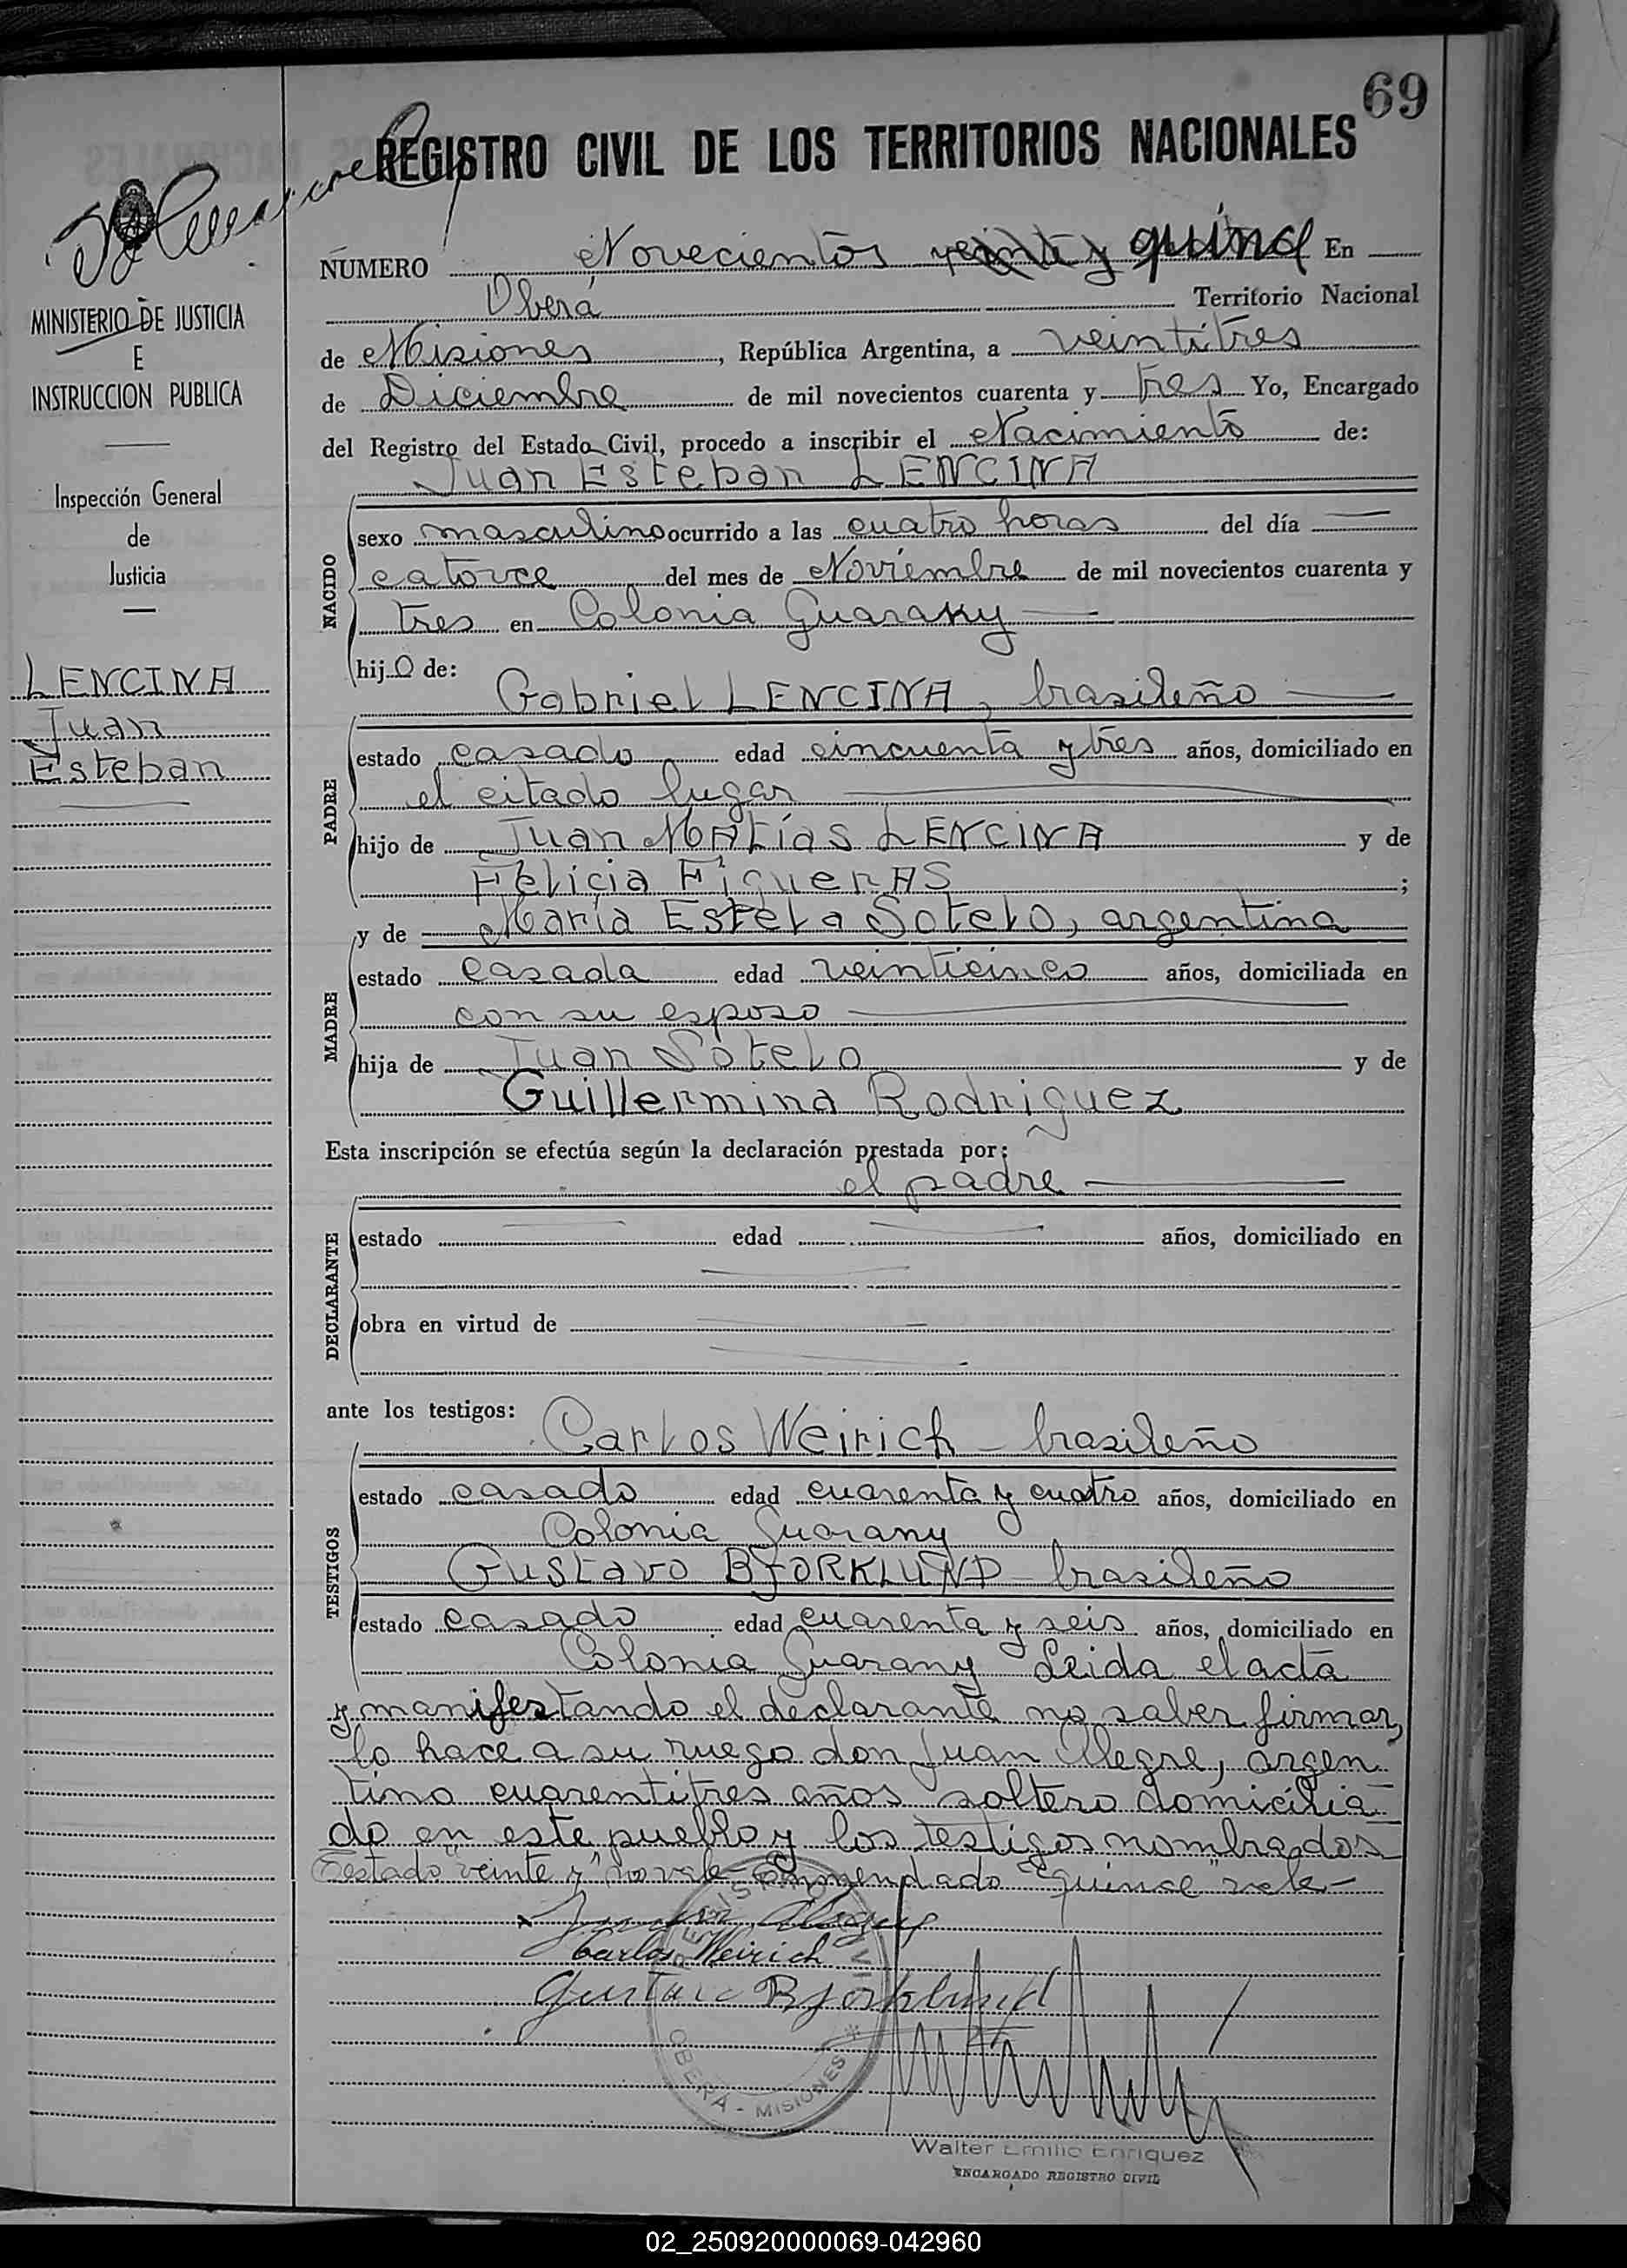 69
REGISTRO CIVIL DE LOS TERRITORIOS NACIONALES
MINISTERIO DE JUSTICIA
E
INSTRUCCION PUBLICA
Inspección General
de
Justicia
LENCINA
Juan
Esteban
NUMERO Novecientos veinte y quince En
Oberá Territorio Nacional
de Misiones, República Argentina, a veintitres
de Diciembre de mil novecientos cuarenta y tres Yo, Encargado
del Registro del Estado Civil, procedo a inscribir el Nacimiento de:
Juan Esteban LENCINA
NACIDO
sexo masculino ocurrido a las cuatro horas del día
catorce del mes de Noviembre de mil novecientos cuarenta y
tres en Colonia Guarany
hijo de:
Gabriel LENCINA, brasileño
PADRE
estado casado edad cincuenta y tres años, domiciliado en
el citado lugar
hijo de Juan Matías LENCINA y de
Felicia Figueras ;
y de María Estela Sotelo, argentina
MADRE
estado casada edad veinticinco años, domiciliada en
con su esposo
hija de Juan Sotelo y de
Guillermina Rodriguez
Esta inscripción se efectúa según la declaración prestada por:
el padre
DECLARANTE
estado edad años, domiciliado en
obra en virtud de
ante los testigos:
Carlos Weirich - brasileño
TESTIGOS
estado casado edad cuarenta y cuatro años, domiciliado en
Colonia Guarany
Gustavo BJORKLUND - brasileño
estado casado edad cuarenta y seis años, domiciliado en
Colonia Guarany Leida el acta
y manifestando el declarante no saber firmar,
lo hace a su ruego don Juan Alegre, argen
tino cuarentitres años soltero domicilia
do en este pueblo y los testigos nombrados
Testado "veinte y" no vale - Enmendado "quince" vale -
Carlos Weirich
Gustavo Bjorklund
REGISTRO CIVIL
OBERA - MISIONES
Walter Emilio Enriquez
ENCARGADO REGISTRO CIVIL
02_250920000069-042960